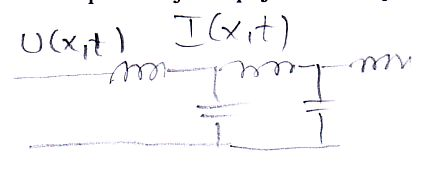 U(x,t) I(x,t)